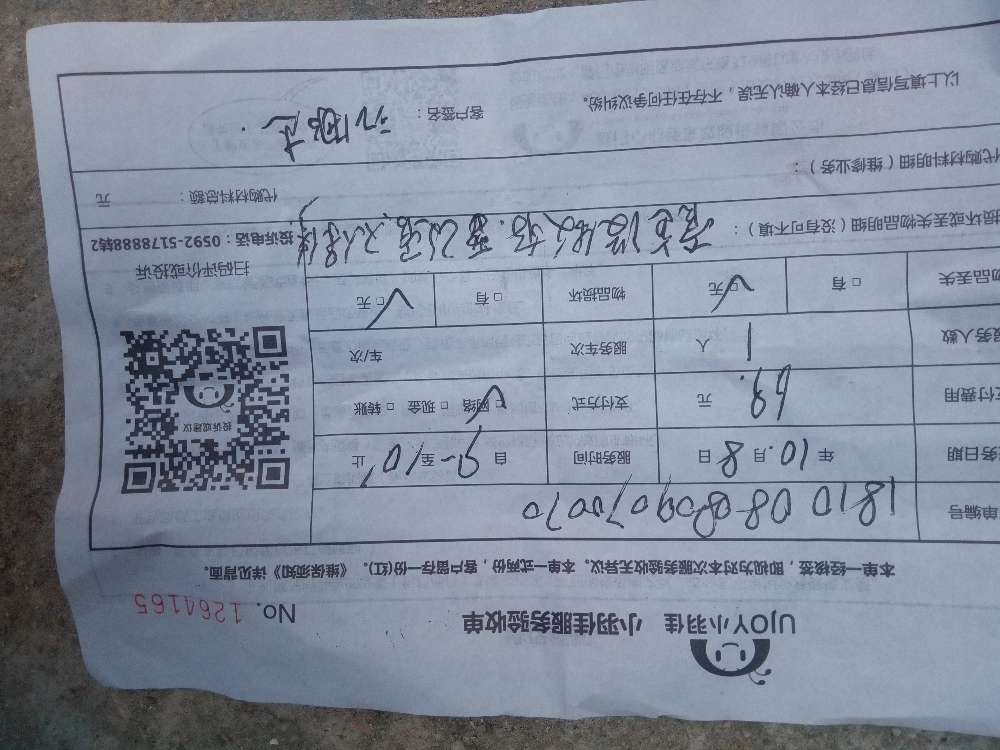 UJOY小羽佳 小羽佳服务验收单
No. 1264165
本单一经核签，即视为对本次服务验收无异议。本单一式两份，客户留存一份(红)。《维保须知》详见背面。
单编号 1810080809070070
务日期 年10.月8日 服务时间 自9~至10止
付费用 69.元 支付方式 □网络 □现金 □转账
务人数 1人 服务车次 车/次
品丢失 □有 □无 物品损坏 □有 □无
投诉或建议
扫码评价或投诉
投诉电话：0592-5178888转2
损坏或丢失物品明细（没有可不填）：
代购材料明细（维修业务）：
代购材料总额： 元
以上填写信息已经本人确认无误，不存在任何争议纠纷。 客户签名：